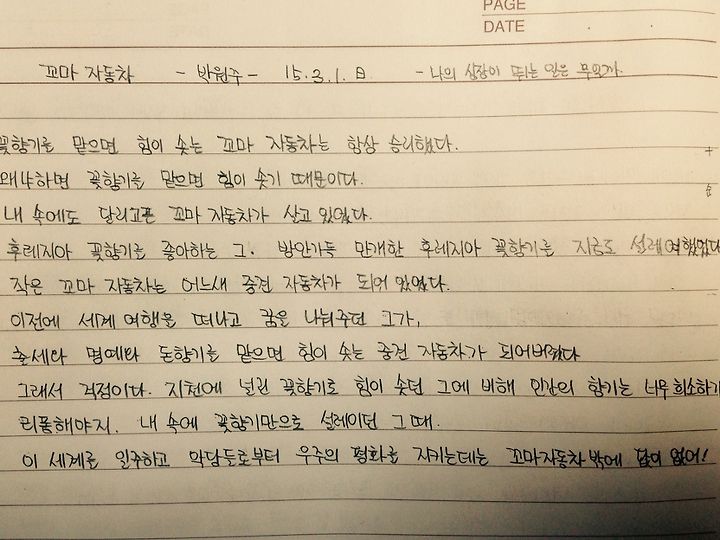 PAGE
DATE
꼬마 자동차 - 박원주 - 15.3.1.日 - 나의 심장이 뛰는 일은 무엇인가.
꽃향기를 맡으면 힘이 솟는 꼬마 자동차는 항상 승리했다.
왜냐하면 꽃향기를 맡으면 힘이 솟기 때문이다.
내 속에도 달리고픈 꼬마 자동차가 살고 있었다.
후레지아 꽃향기를 좋아하는 그. 방안가득 만개한 후레지아 꽃향기를 지금도 설레여했었다
작은 꼬마 자동차는 어느새 중견 자동차가 되어 있었다.
이전에 세계여행을 떠나고 꿈을 나눠주던 그가,
출세와 명예와 돈향기를 맡으면 힘이 솟는 중견 자동차가 되어버렸다
그래서 걱정이다. 지천에 널린 꽃향기로 힘이 솟던 그에 비해 인간의 향기는 너무 희소하기
리폼해야지. 내 속에 꽃향기만으로 설레이던 그때.
이 세계를 일주하고 악당들로부터 우주의 평화를 지키는데는 꼬마자동차밖에 답이 없어!